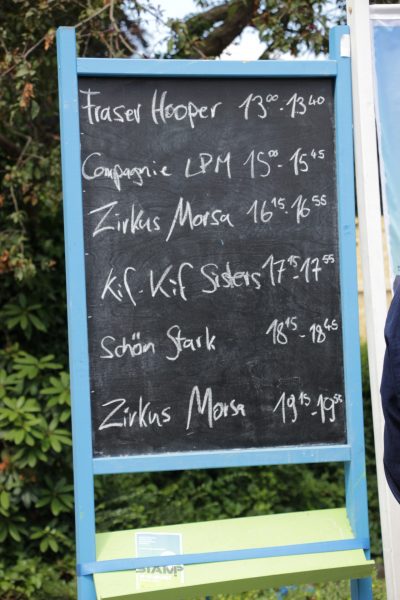 Fraser Hooper 13⁰⁰-13⁴⁰
Compagnie LPM 15⁰⁰-15⁴⁵
Zirkus Morsa 16¹⁵-16⁵⁵
Kif-Kif Sisters 17¹⁵-17⁵⁵
Schön Stark 18¹⁵-18⁴⁵
Zirkus Morsa 19¹⁵-19⁵⁵
STAMP